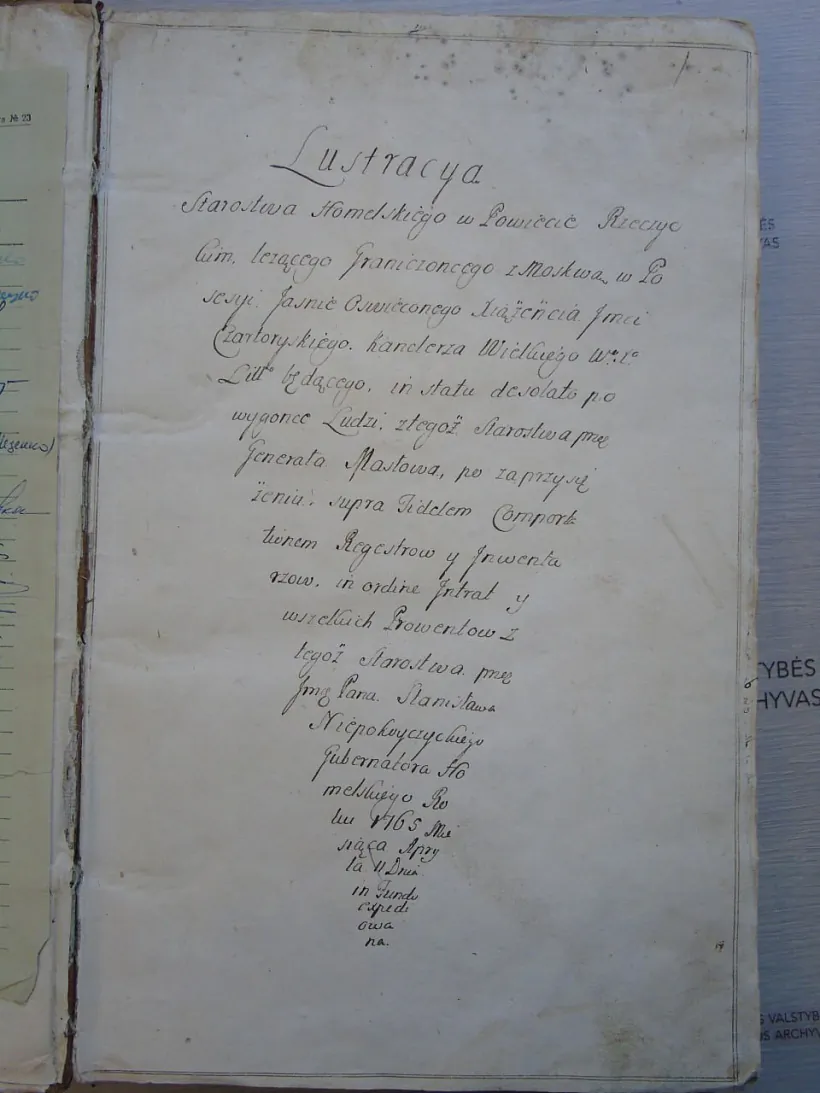 № 23
Lustracya
Starostwa Homelskiégo w Powiecie Rzeczyc
kim, lezącego Graniczoncego z Moskwą w Po
sesyi Jasnie Oswieconego Xiążęncia Jmci
Czartoryskiégo. Kanclerza Wielkiego W. X.
Litt. będącego, in statu desolato po
wygonce Ludzi, ztegoż Starostwa prze
Generała Masłowa, po zaprzysię
żeniu, supra Fidelem Comporta
tionem Regestrow y Jnwenta
rzow, in ordine Jntrat y
wszelkich Prowentow z
tegoż Starostwa, prze
Jmę Pana Stanisława
Niepokoyczyckiego
Gubernatora Ho
melskiego Ro
ku 1765 Mie
siąca Apry
la 11 Dnia
in Fundo
expedi
owa
na.
YBĖS
HYVAS
VALSTYB
ARCHYV